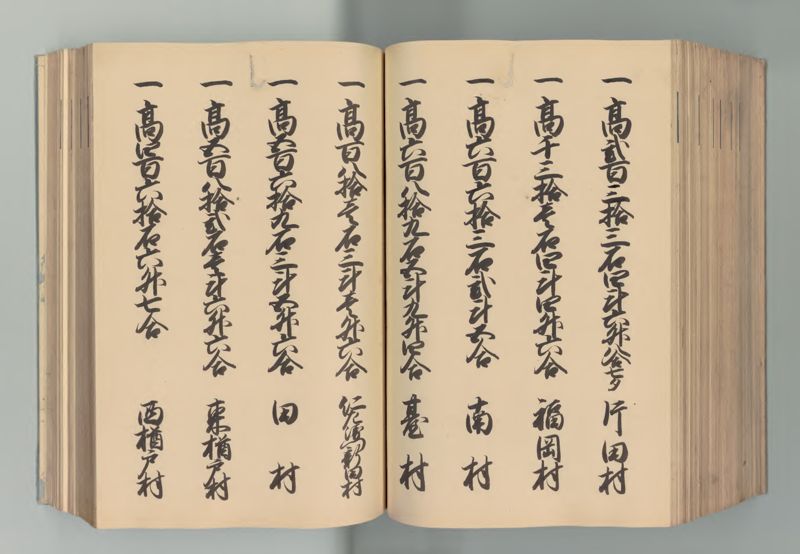 一高弐百三拾三石四斗六升八合七夕 片田村
一高千三拾壱石四斗四升六合 福岡村
一高六百六拾三石弐斗五合 南村
一高六百八拾九石五斗九升四合 臺村
一高百八拾壱石三斗壱升六合 仁左衛門新田村
一高五百六拾九石三斗五升六合 田村
一高五百八拾弐石壱斗六升六合 東楢戸村
一高四百六拾石六升七合 西楢戸村